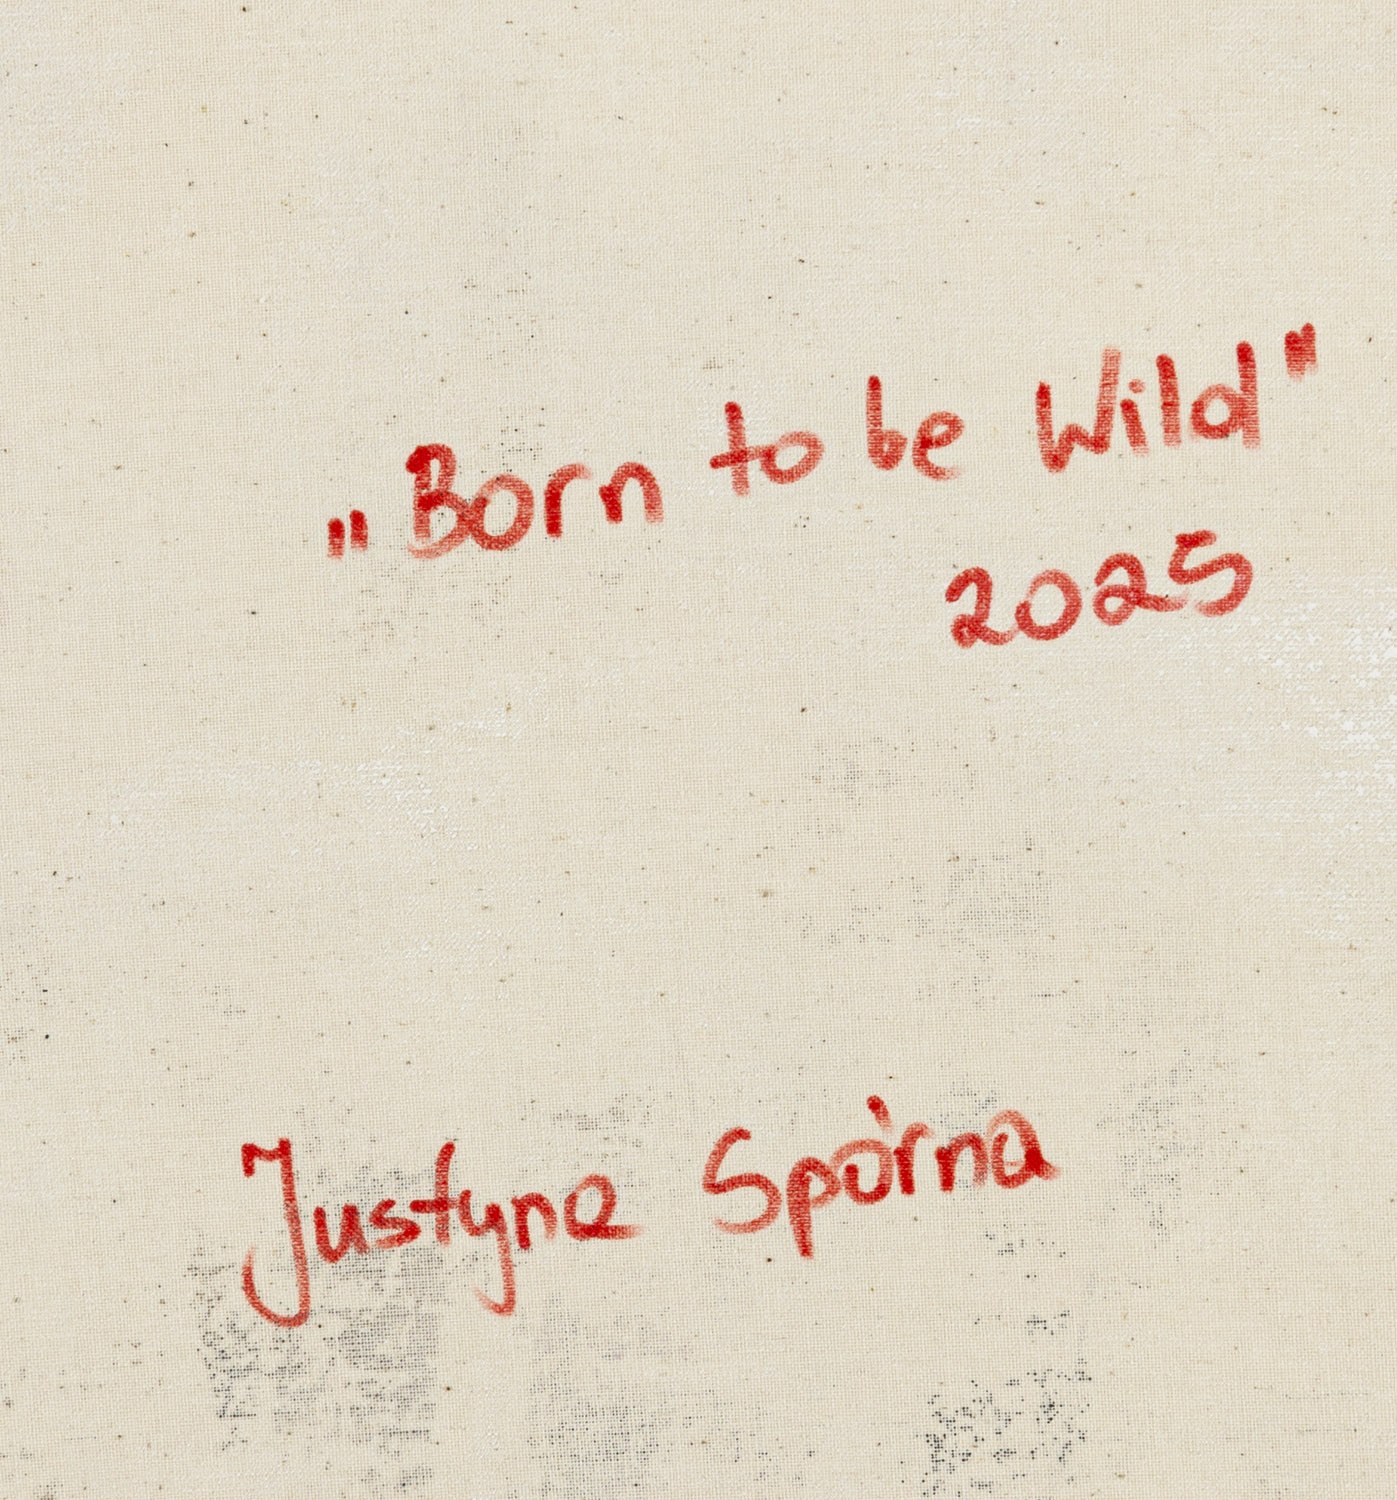 „Born to be Wild"
2025
Justyna Spórna